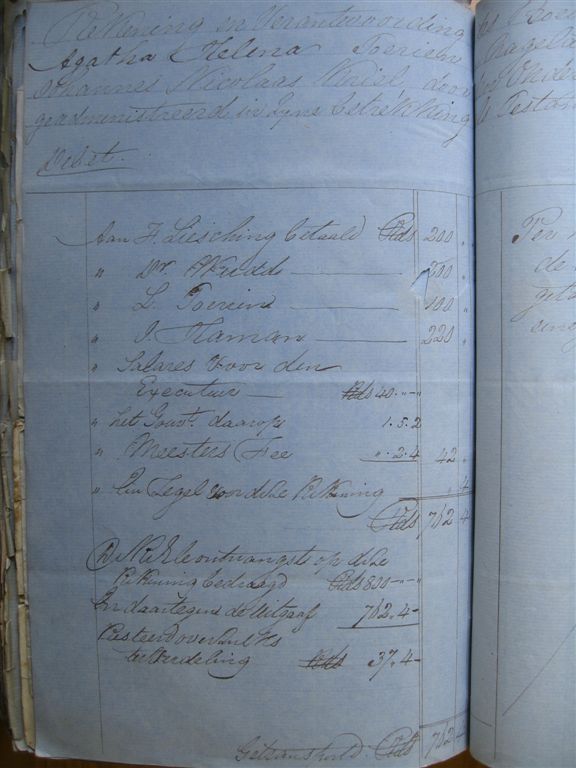 Rekening en Verantwoording
Agatha Helena Poerien
Johannes Nicolaas Nudel, door
geadministreerd in zyne betrekking
Debet.
Aan F. Liesching betaald Rds 200 "
" Dr. 200 "
" L. Poerien 100 "
" J. Haman 220 "
" Salares voor den
Executeur Rds 40."-"
" het Gouvt. daarop 1.5.2
" Meesters Fee ".2.4 42 "
" Een Zegel voor deze Rekening " 4
Rds 762 4
De ontvangst op deze
Rekening bedraagd Rds 800-"-"
En daartegens de Uitgaaf 762.4-
Resteerd overzulks
ter Verdeeling Rds 37.4-
Getransport Rds 762 4
Per
de